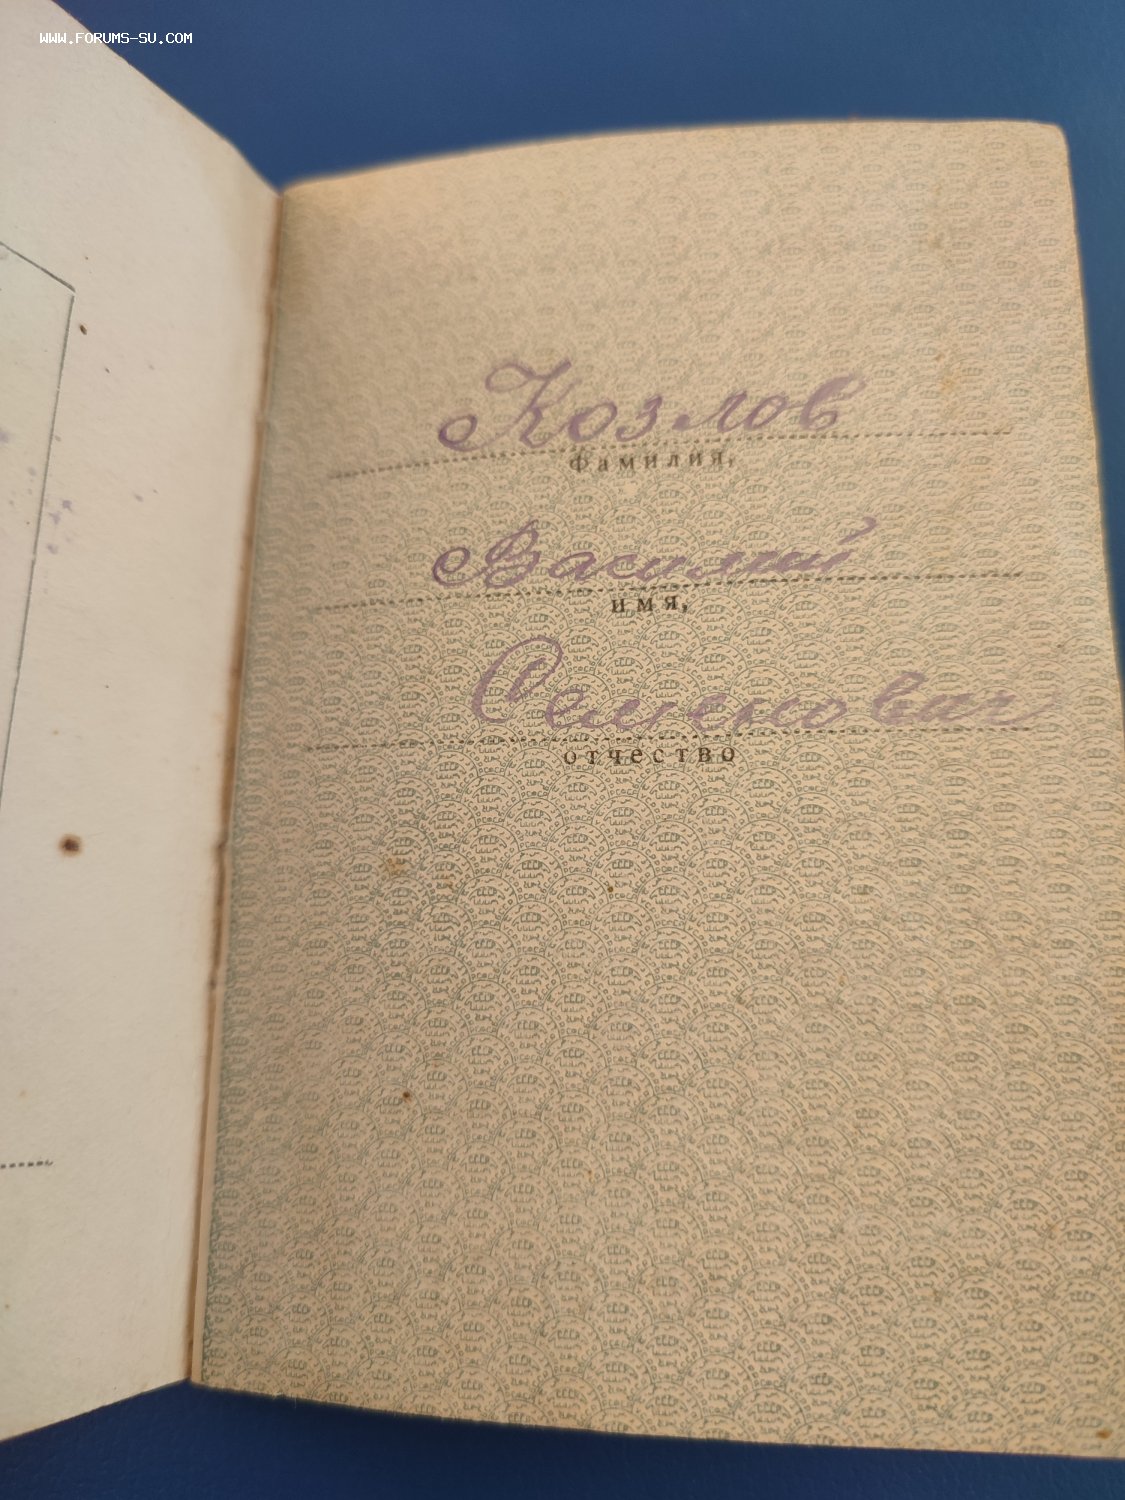 WWW.FORUMS-SU.COM
Козлов
фамилия,
Василий
имя,
Семенович
отчество